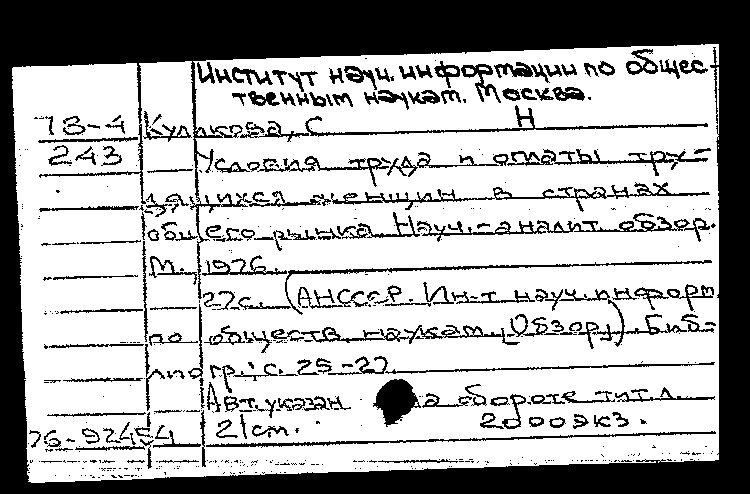 Институт науч. информации по общес-
твенным наукам. Москва.
78-4 Куликова, С Н
243 Условия труда и оплаты тру-
дящихся женщин в странах
общего рынка. Науч.-аналит. обзор.
М., 1976.
27с. (АНСССР. Ин-т науч. информ.
по обществ. наукам. Обзор). Биб-
лиогр.: с. 25-27.
Авт. указан на обороте тит. л.
76-92454 21cm. 2000экз.